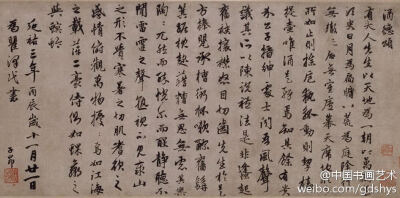 酒德頌
有大人先生以天地爲一朝以萬期
爲須臾日月爲扃牖八荒爲庭除
行無轍迹居無室廬幕天席地縱意
所如止則操卮執觚動則挈榼
提壺唯酒是務焉知其餘有貴
介公子搢紳處士聞吾風聲
議其所以陳說禮法是非鋒起
奮袂攘襟怒目切齒先生於是
方捧罌承槽銜杯漱醪奮髯
箕踞枕麴藉糟無思無慮其樂
陶陶兀然而醉恍爾而醒靜聽不
聞雷霆之聲熟視不見泰山
之形不覺寒暑之切肌嗜欲之
感情俯觀萬物擾擾焉如江漢
之載浮萍二豪侍側焉如蜾蠃之
與螟蛉
延祐三年丙辰歲十一月廿一日
爲瞿澤書 子昂
@中国书画艺术
weibo.com/gdshys